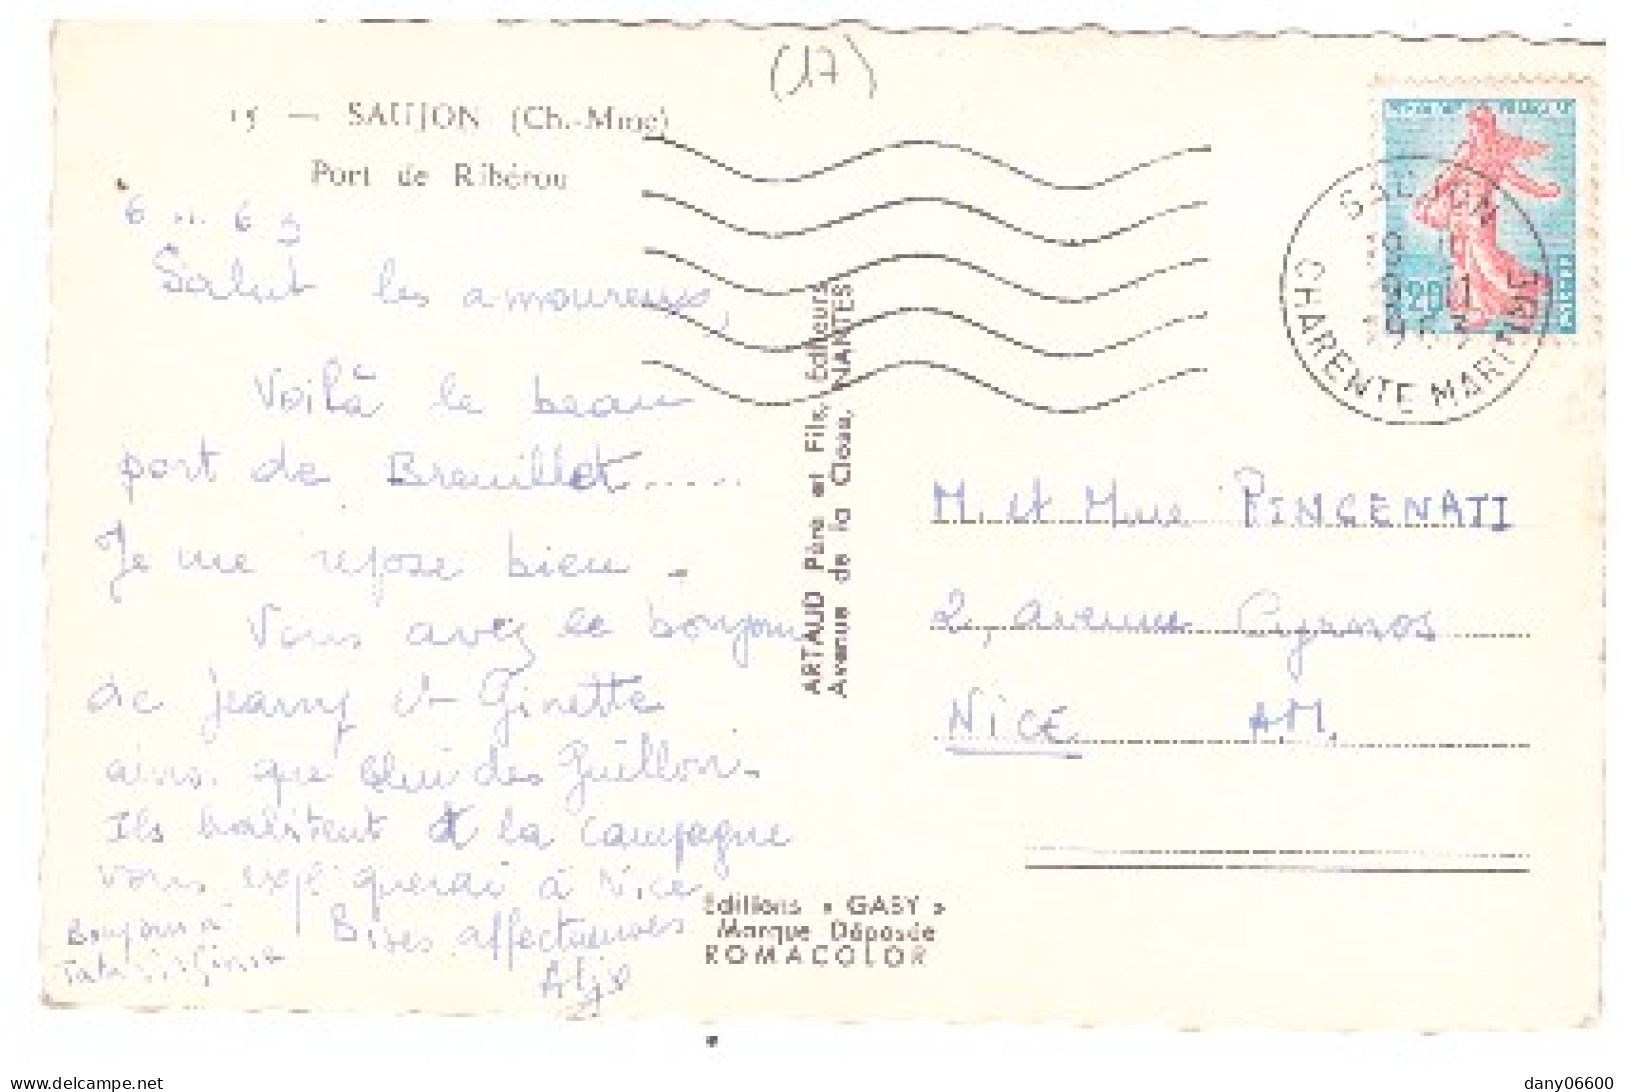 (17)
15 — SAUJON (Ch.-Mme)
Port de Ribérou
6 11 63
Salut les amoureux,
Voilà le beau
port de Breuillet.....
Je me repose bien.
Vous avez le bonjour
de Jeany et Ginette
ainsi que celui des Guillon.
Ils habitent à la campagne
vous expliquerai à Nice
Bises affectueuses
Bonjour à
Tata
ARTAUD Père et Fils, Editeurs
Avenue de la Close, NANTES
Editions « GABY »
Marque Déposée
ROMACOLOR
SAUJON
CHARENTE MARITIME
0,20
M. et Mme PINCENATI
2, avenue Cyrnos
NICE A.M.
delcampe.net
dany06600